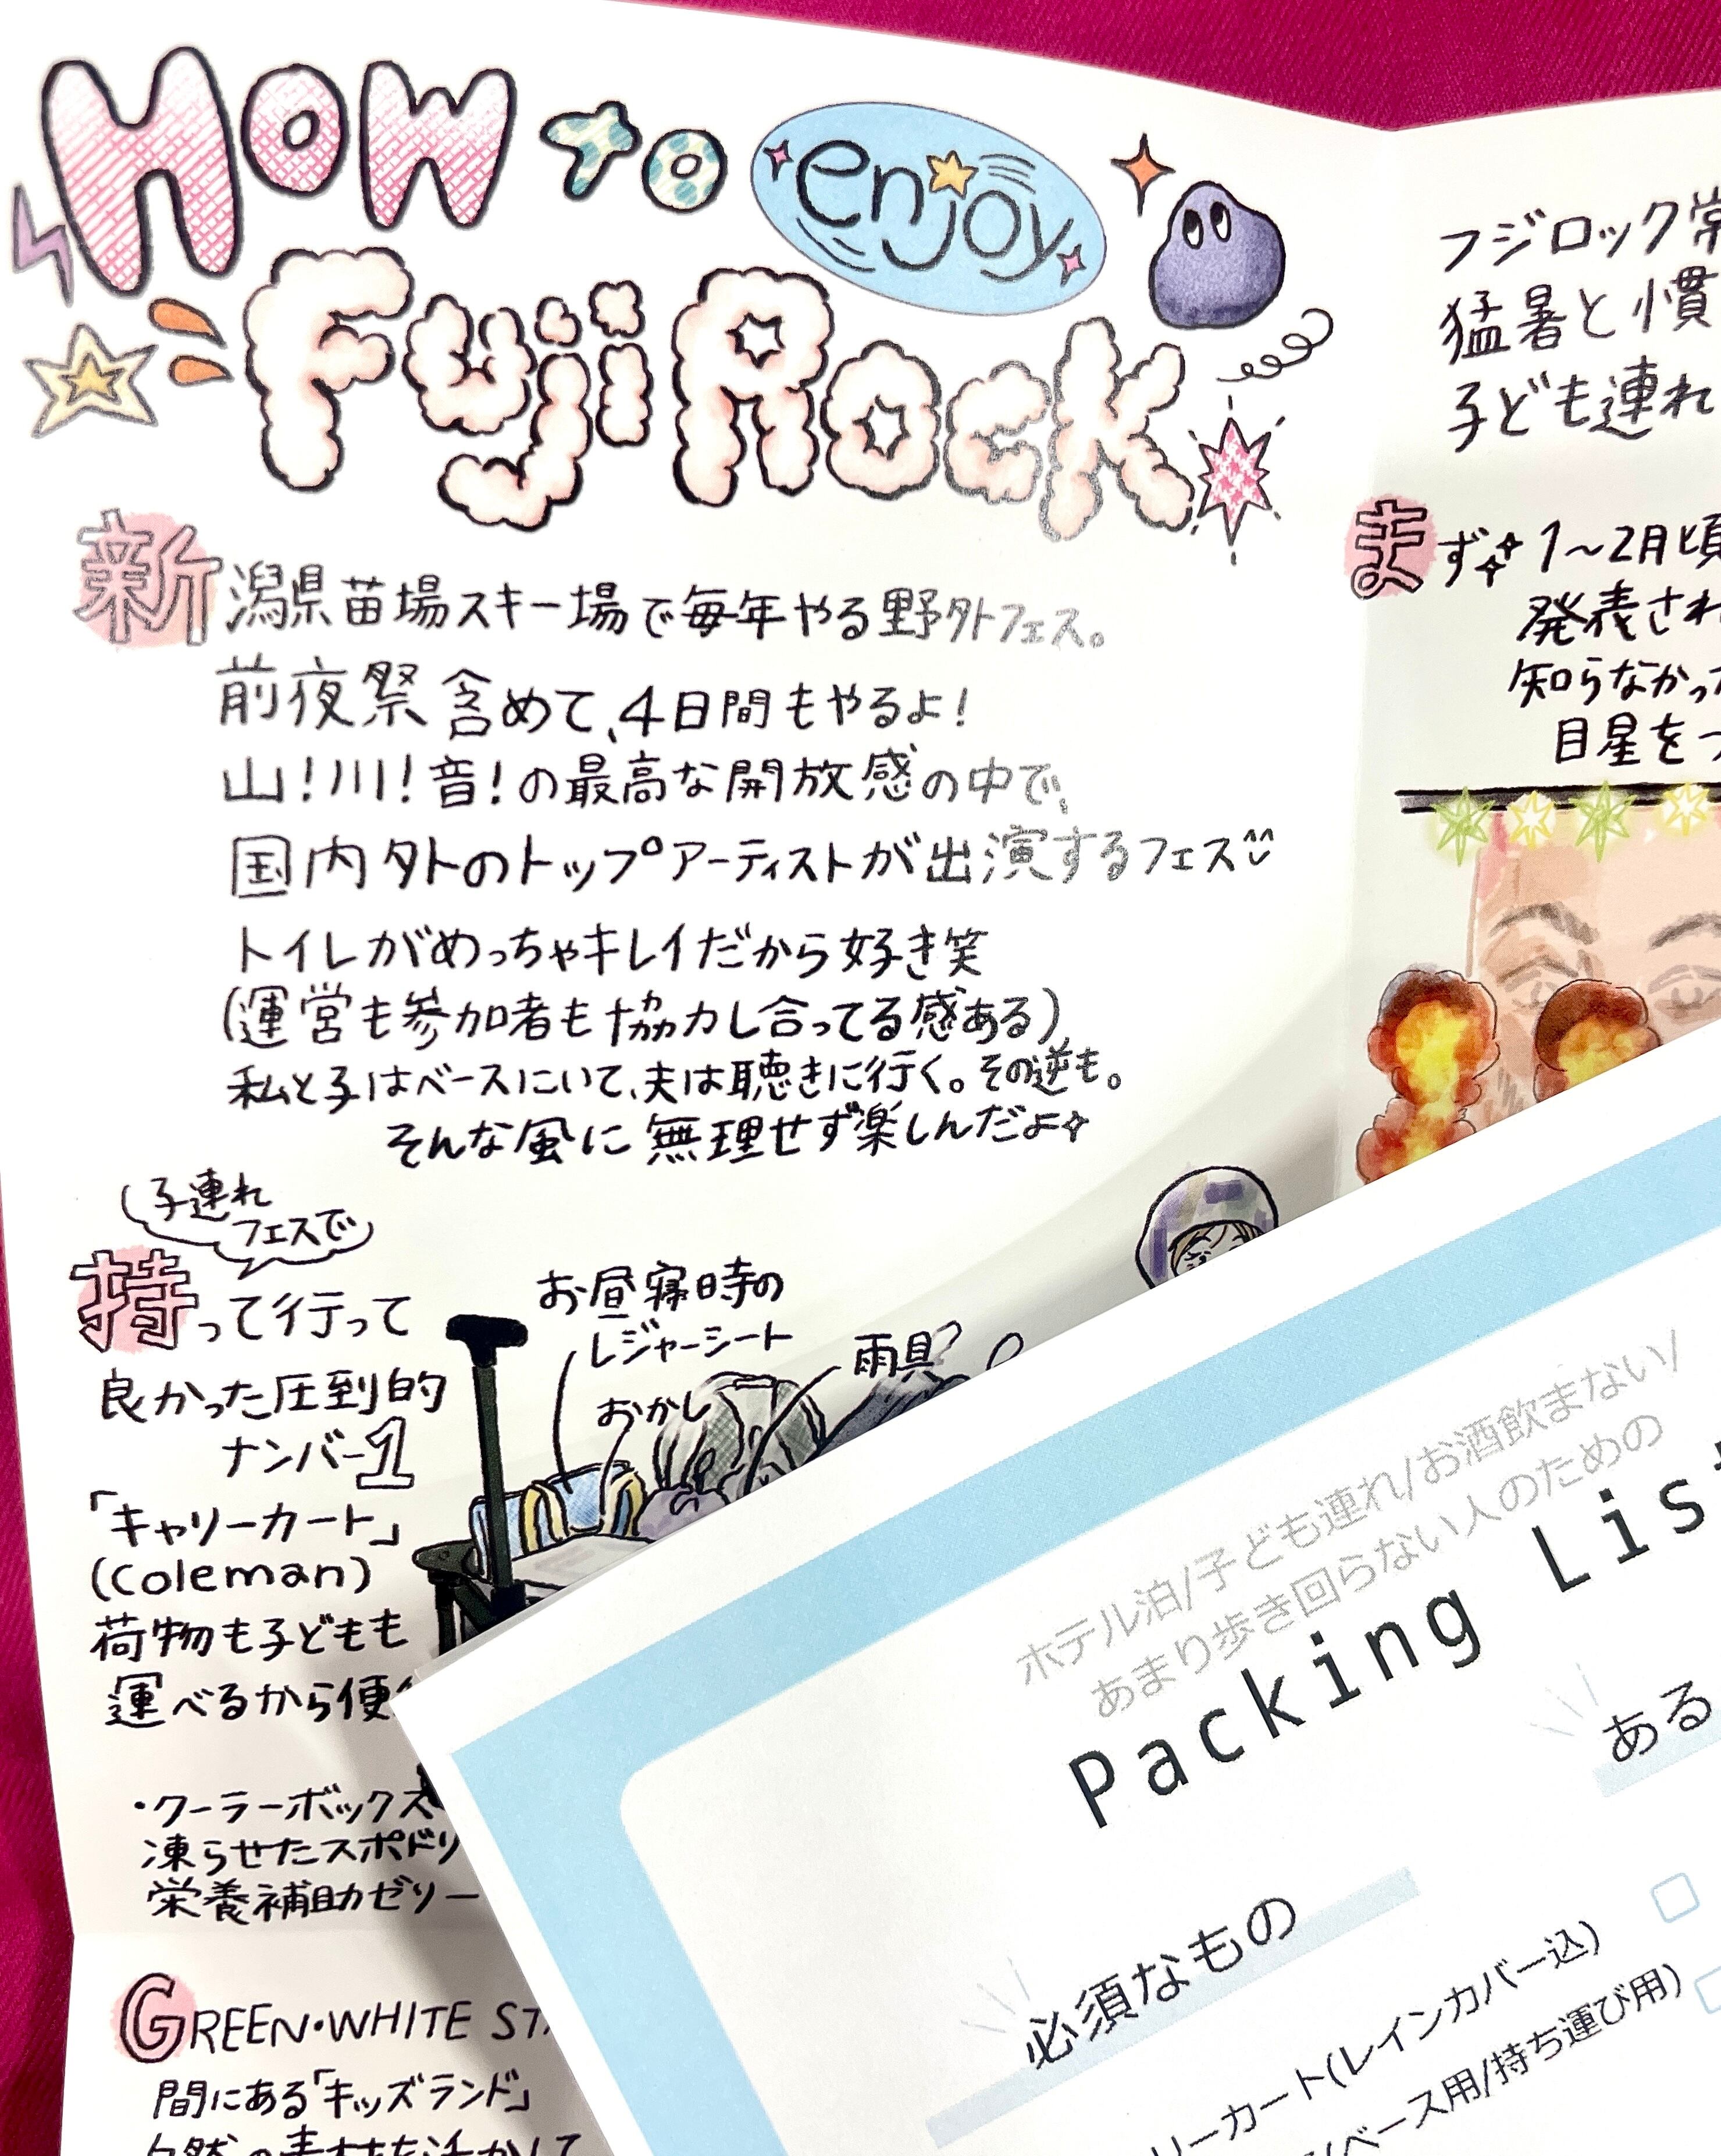 How to enjoy
Fuji Rock
新潟県苗場スキー場で毎年やる野外フェス。
前夜祭含めて、4日間もやるよ!
山!川!音!の最高な開放感の中で、
国内外のトップアーティストが出演するフェス
トイレがめっちゃキレイだから好き笑
(運営も参加者も協力し合ってる感ある)
私と子はベースにいて、夫は聴きに行く。その逆も。
そんな風に無理せず楽しんだよ
子連れ
フェスで
持って行って
良かった圧到的
ナンバー1
「キャリーカート」
(Coleman)
荷物も子どもも
運べるから便
お昼寝時の
レジャーシート
おかし
雨具
・クーラーボックス
凍らせたスポドリ
栄養補助ゼリー
GREEN・WHITE ST
間にある「キッズランド」
フジロック常
猛暑と慣
子ども連れ
まず 1~2月頃
発表され
知らなかった
目星をつ
ホテル泊/子ども連れ/お酒飲まない/
あまり歩き回らない人のための
Packing Lis
ある
必須なもの
リーカート(レインカバー込)
ベース用/持ち運び用)